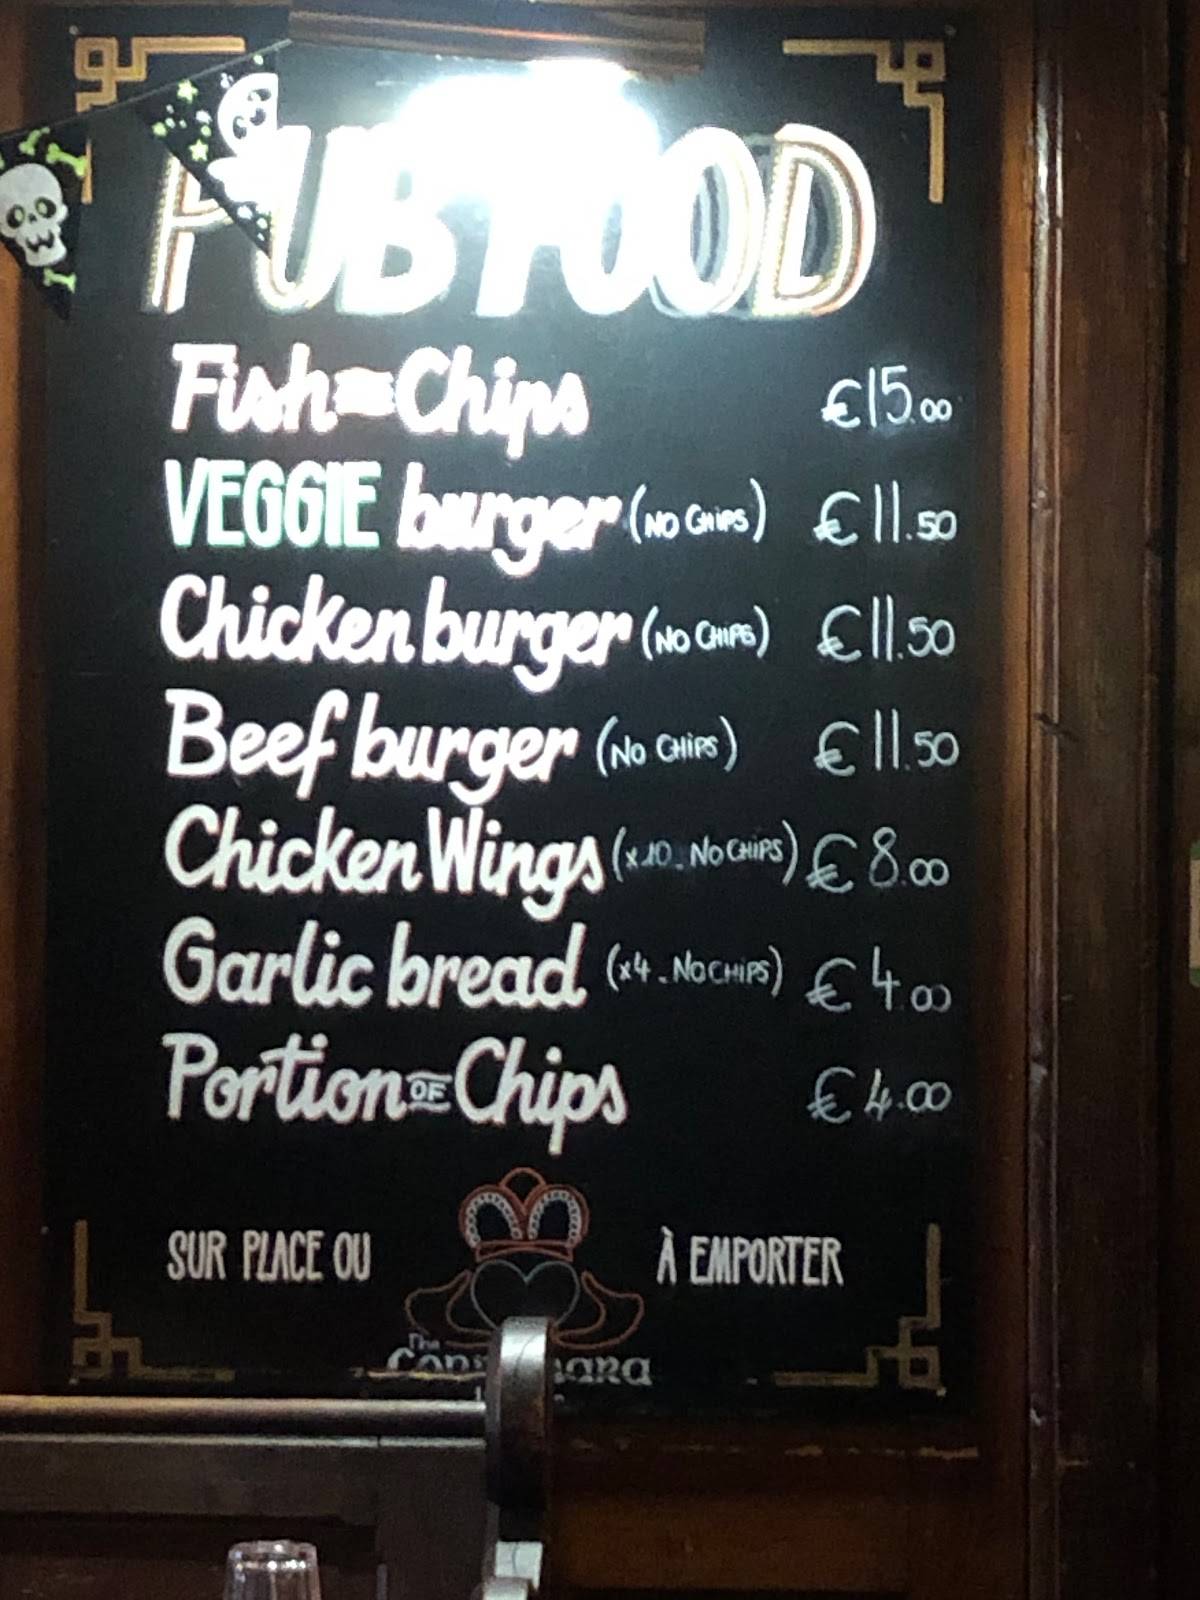 PUB FOOD
Fish & Chips €15.00
VEGGIE burger (NO CHIPS) €11.50
Chicken burger (NO CHIPS) €11.50
Beef burger (NO CHIPS) €11.50
Chicken Wings (x10_NO CHIPS) €8.00
Garlic bread (x4_NO CHIPS) €4.00
Portion OF Chips €4.00
SUR PLACE OU À EMPORTER
The